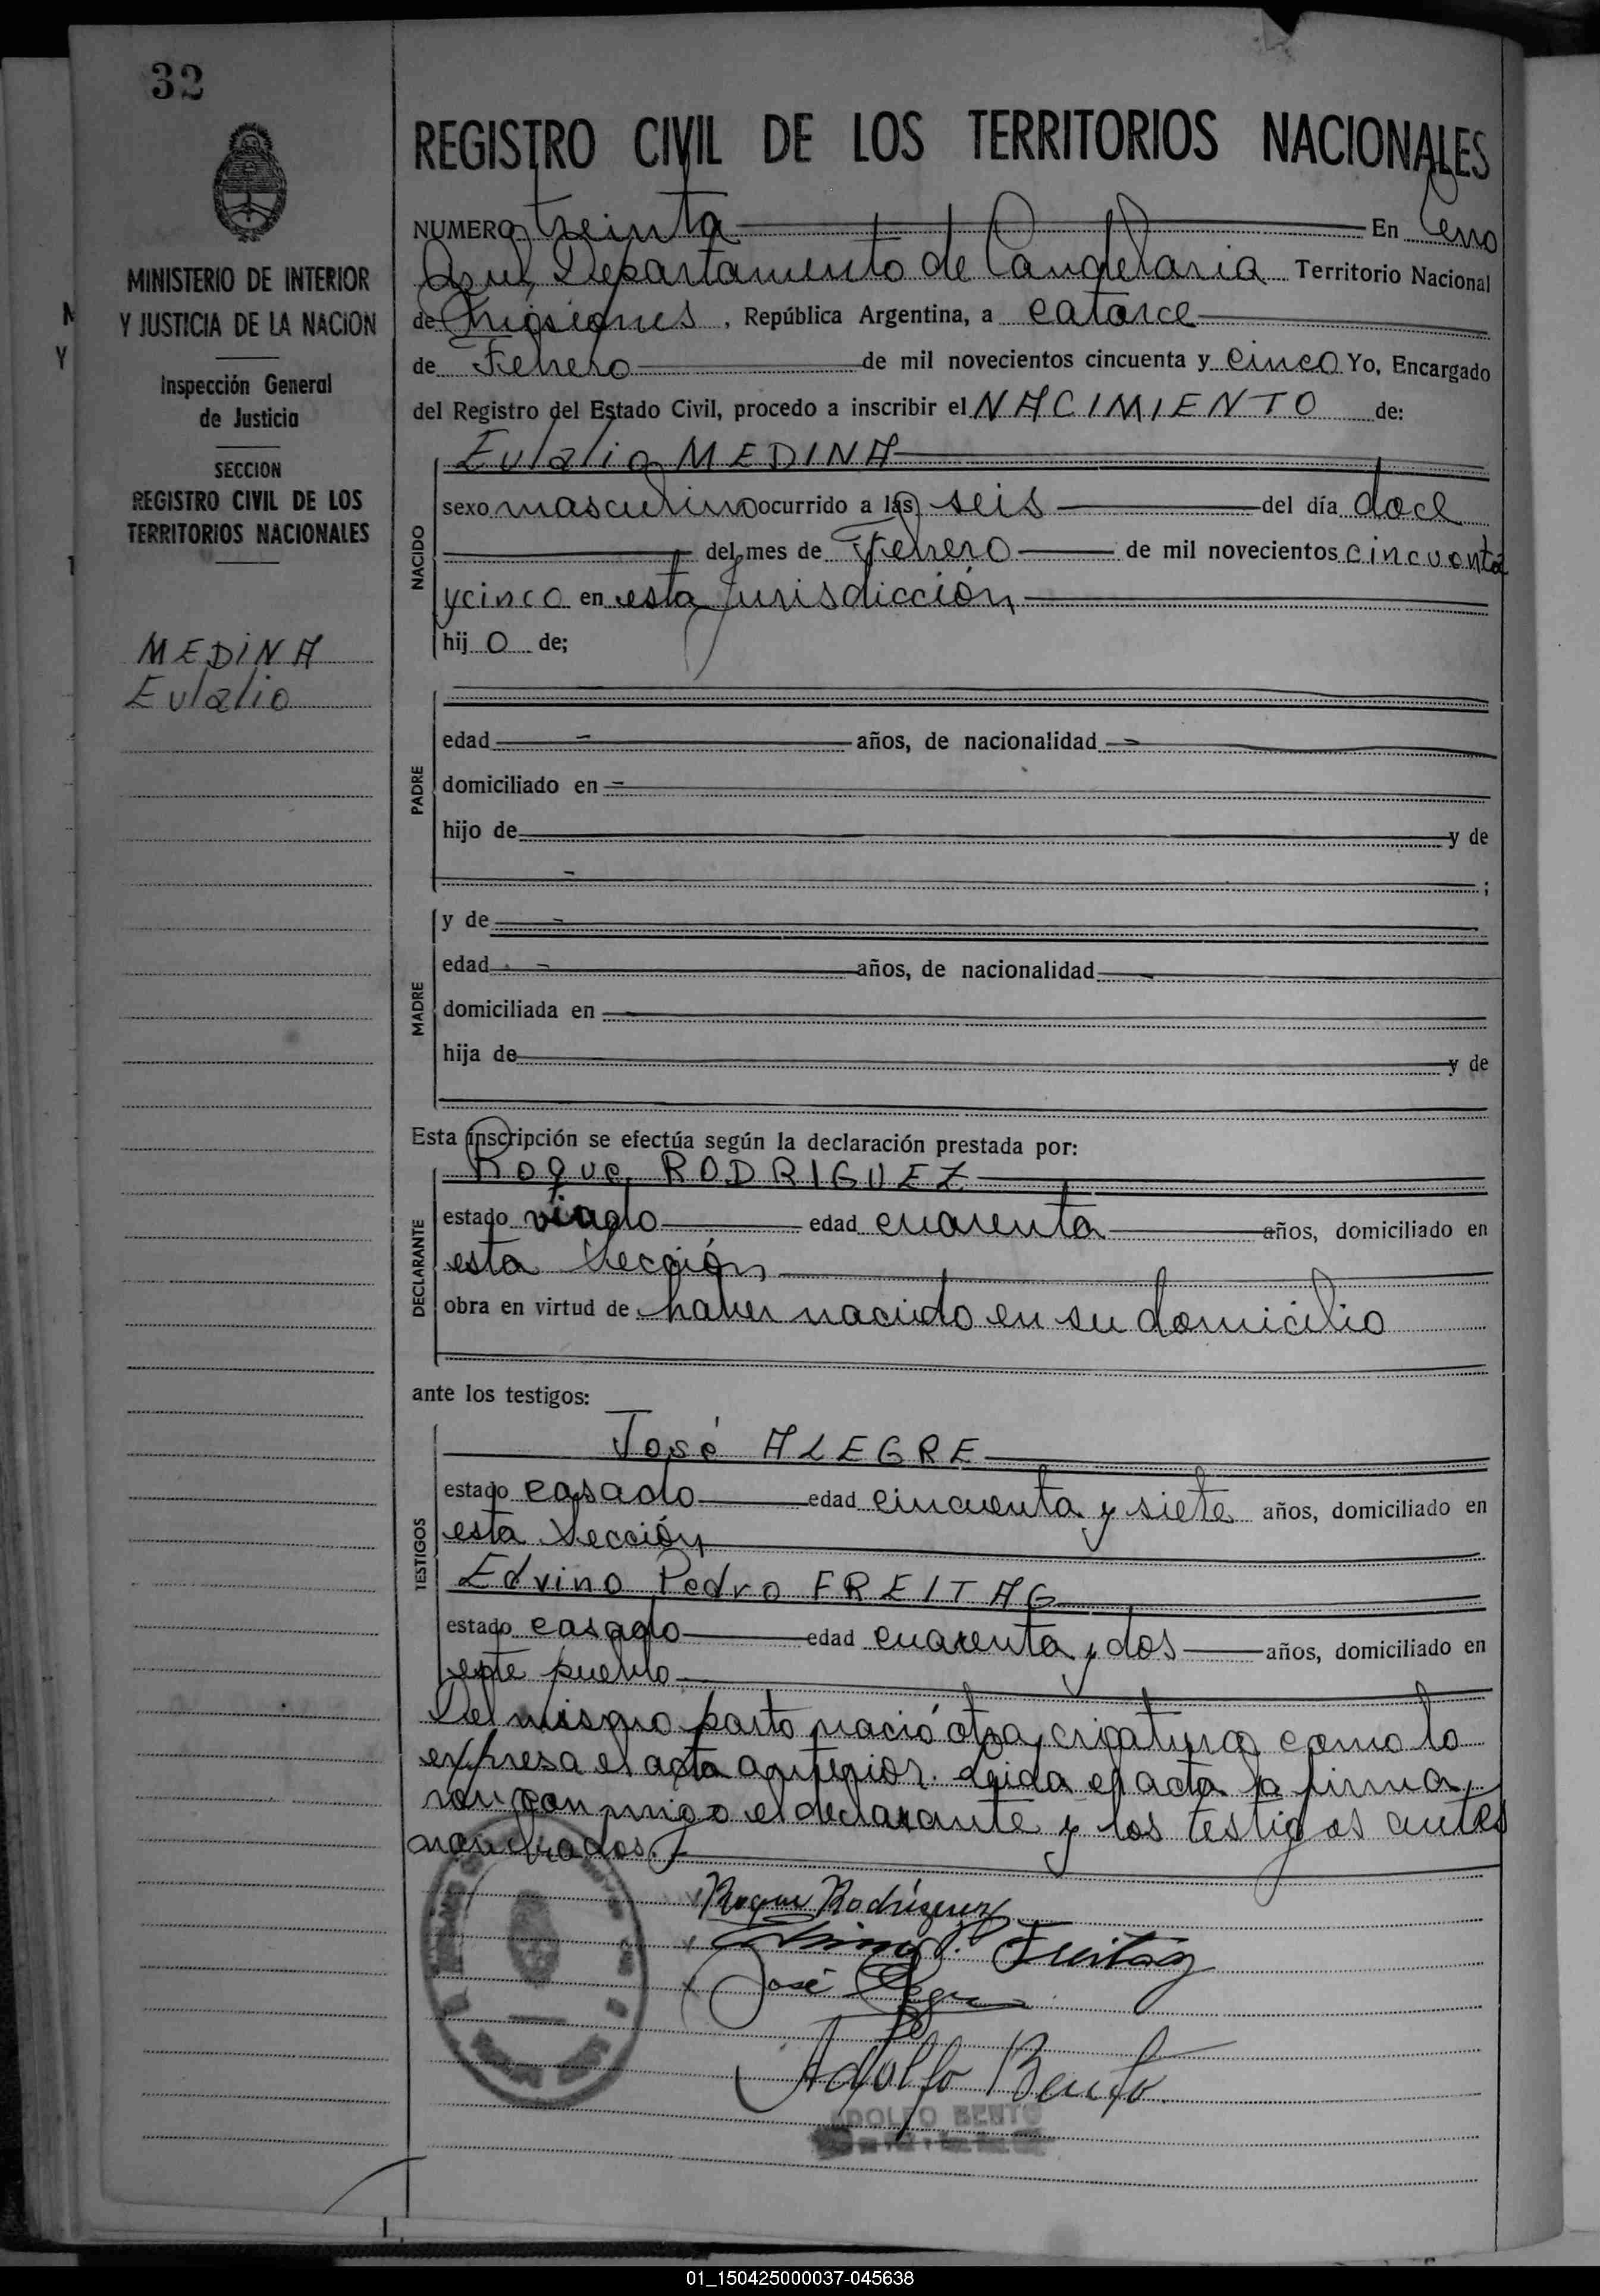 32
MINISTERIO DE INTERIOR
Y JUSTICIA DE LA NACION
Inspección General
de Justicia
SECCION
REGISTRO CIVIL DE LOS
TERRITORIOS NACIONALES
MEDINA
Eulalio
REGISTRO CIVIL DE LOS TERRITORIOS NACIONALES
NUMERO treinta En Cerro
Azul, Departamento de Candelaria Territorio Nacional
de Misiones, República Argentina, a catorce
de Febrero de mil novecientos cincuenta y cinco Yo, Encargado
del Registro del Estado Civil, procedo a inscribir el NACIMIENTO de:
NACIDO
Eulalio MEDINA
sexo masculino ocurrido a las seis del día doce
del mes de Febrero de mil novecientos cincuenta
y cinco en esta Jurisdicción
hijo de;
PADRE
edad años, de nacionalidad
domiciliado en
hijo de y de
;
MADRE
y de
edad años, de nacionalidad
domiciliada en
hija de y de
Esta inscripción se efectúa según la declaración prestada por:
DECLARANTE
Roque RODRIGUEZ
estado viudo edad cuarenta años, domiciliado en
esta Sección
obra en virtud de haber nacido en su domicilio
ante los testigos:
TESTIGOS
José ALEGRE
estado casado edad cincuenta y siete años, domiciliado en
esta Sección
Edvino Pedro FREITAG
estado casado edad cuarenta y dos años, domiciliado en
este pueblo
Del mismo parto nació otra criatura como lo
expresa el acta anterior. Leida el acta la firma
ron conmigo el declarante y los testigos antes
nombrados.
Roque Rodriguez
Edvino P. Freitag
José Alegre
Adolfo Bento
ADOLFO BENTO
01_150425000037-045638